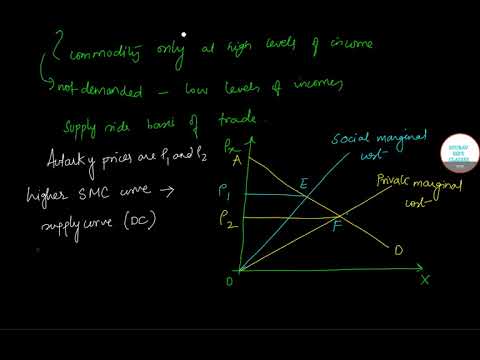 commodity only at high levels of income
not demanded - low levels of incomes
Supply side bases of trade.
Autarky prices are P1 and P2
higher SMC curve →
supply curve (DC)
Px
A
P1
P2
O
E
F
D
X
Social marginal
cost
Private marginal
cost